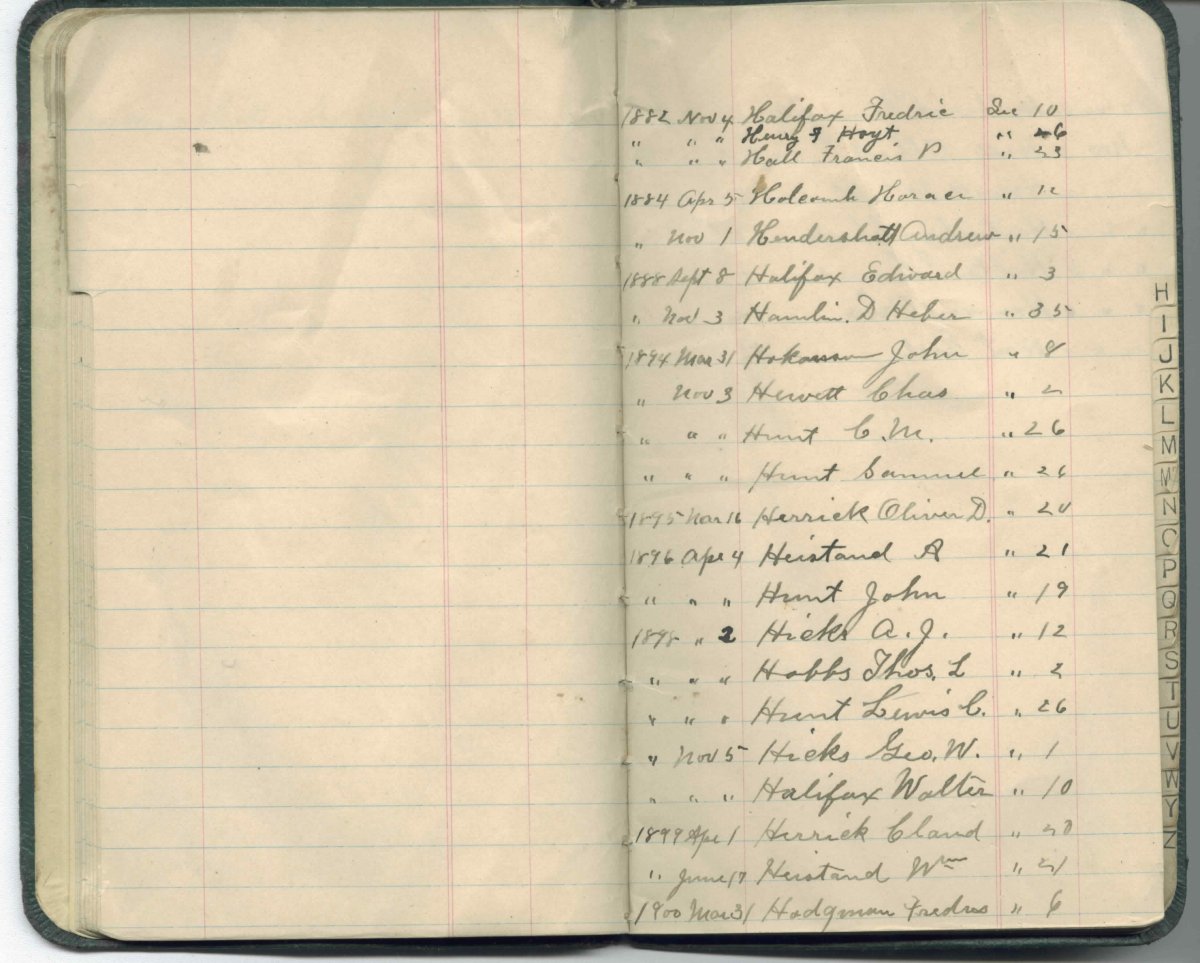 1882 Nov 4 Halifax Fredric Sec 10
" " " Henry F Hoyt " 26
" " " Hall Francis P " 23
1884 Apr 5 Holcomb Horace " 12
" Nov 1 Hendershott Andrew " 15
1888 Sept 8 Halifax Edward " 3
" Nov 3 Hamlin. D Heber " 35
1894 Mar 31 Hokanson John " 8
" Nov 3 Hewett Chas " 2
" " " Hunt C. M. " 26
" " " Hunt Samuel " 26
1895 Mar 16 Herrick Oliver D. " 20
1896 Apr 4 Heistand A " 21
" " " Hunt John " 19
1898 " 2 Hicks A. J. " 12
" " " Hobbs Thos. L " 2
" " " Hunt Lewis C. " 26
" Nov 5 Hicks Geo. W. " 1
" " " Halifax Walter " 10
1899 Apr 1 Herrick Claud " 20
" June 17 Heistand Wm " 21
1900 Mar 31 Hodgman Fredus " 6
H
I
J
K
L
M
Mc
N
O
P
Q
R
S
T
U
V
W
Y
Z